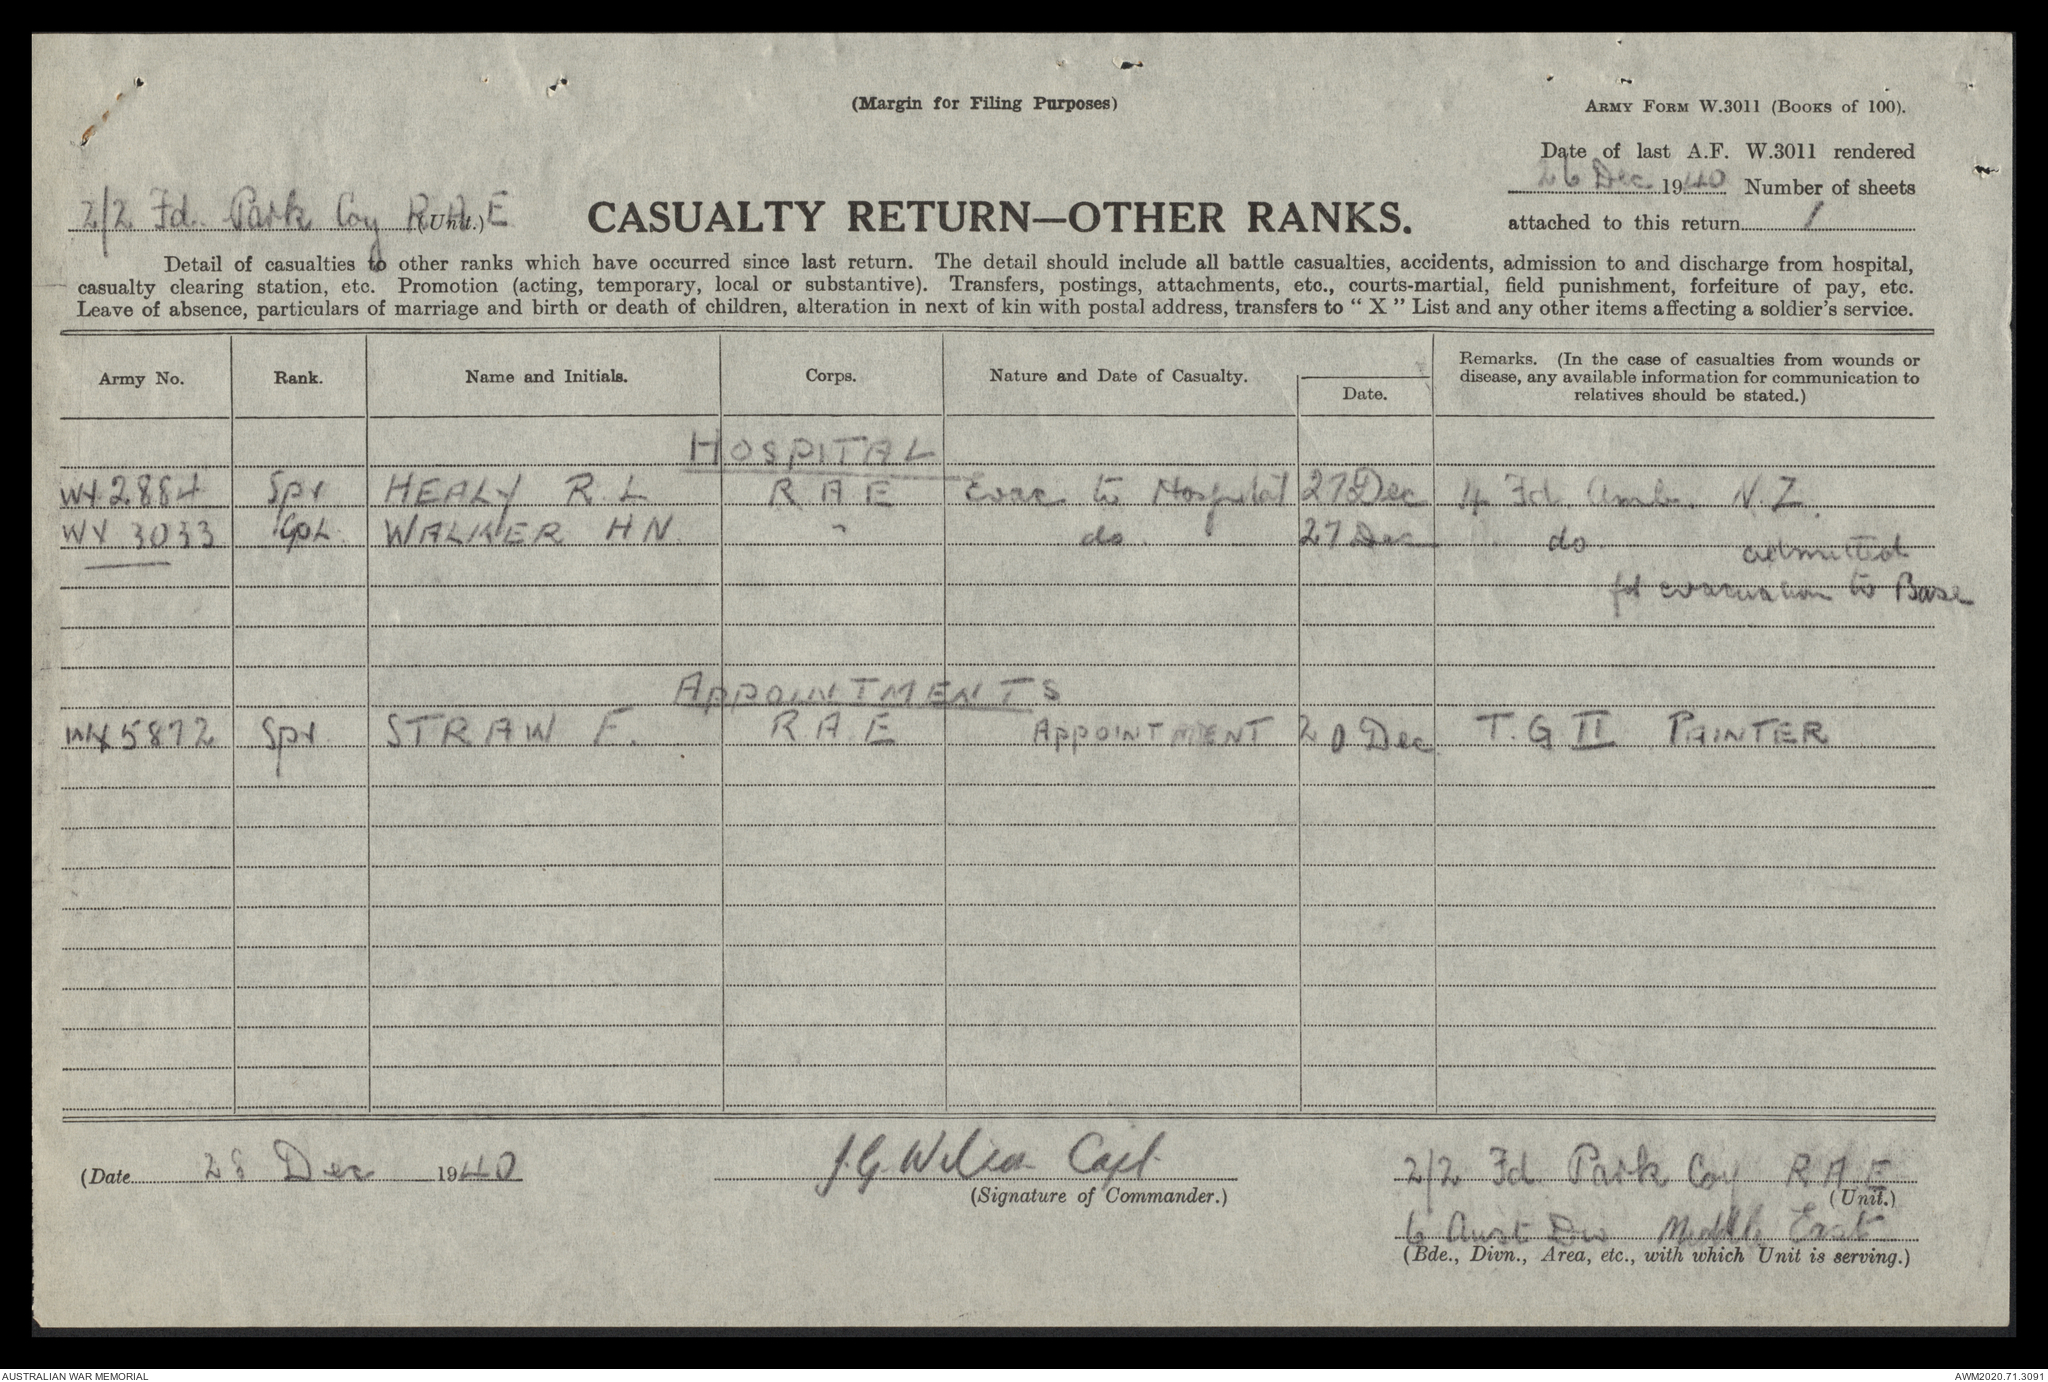 (Margin for Filing Purposes)
ARMY FORM W.3011 (BOOKS OF 100).
Date of last A.F. W.3011 rendered
26 Dec 1940 Number of sheets
attached to this return 1
2/2 Fd. Park Coy R.A.E (Unit.)
CASUALTY RETURN—OTHER RANKS.
Detail of casualties to other ranks which have occurred since last return. The detail should include all battle casualties, accidents, admission to and discharge from hospital,
casualty clearing station, etc. Promotion (acting, temporary, local or substantive). Transfers, postings, attachments, etc., courts-martial, field punishment, forfeiture of pay, etc.
Leave of absence, particulars of marriage and birth or death of children, alteration in next of kin with postal address, transfers to “ X ” List and any other items affecting a soldier's service.
Army No. Rank. Name and Initials. Corps. Nature and Date of Casualty. Date. Remarks. (In the case of casualties from wounds or
disease, any available information for communication to
relatives should be stated.)
HOSPITAL
WX2884 Spr HEALY R.L R A E Evac to Hospital 27 Dec 4 Fd Amb. N.Z.
WX 3033 Cpl. WALKER HN. " do. 27 Dec do. admitted
fd evacuation to Base
APPOINTMENTS
WX5872 Spr. STRAW F. R.A.E APPOINTMENT 20 Dec. T.G II PAINTER
(Date 28 Dec 1940
J.G. Wilson Capt.
(Signature of Commander.)
2/2 Fd. Park Coy R A E
(Unit.)
6 Aust Div Middle East
(Bde., Divn., Area, etc., with which Unit is serving.)
AUSTRALIAN WAR MEMORIAL
AWM2020.71.3091